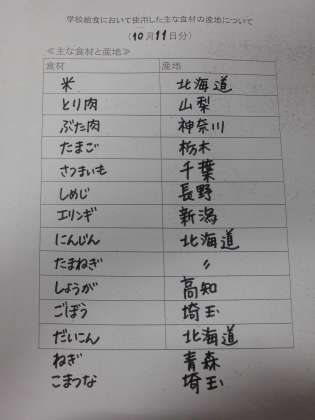 学校給食において使用した主な食材の産地について
(10月11日分)
≪主な食材と産地≫
食材 産地
米 北海道
とり肉 山梨
ぶた肉 神奈川
たまご 栃木
さつまいも 千葉
しめじ 長野
エリンギ 新潟
にんじん 北海道
たまねぎ 〃
しょうが 高知
ごぼう 埼玉
だいこん 北海道
ねぎ 青森
こまつな 埼玉